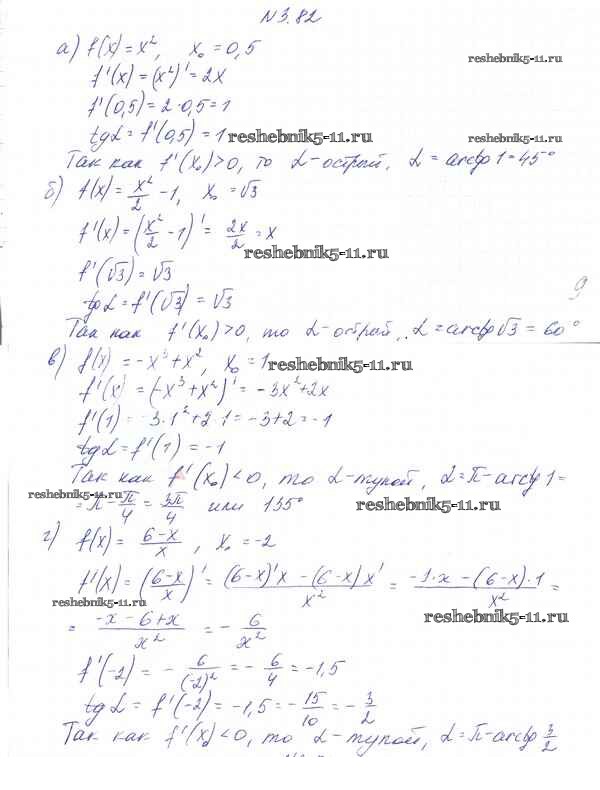 N 3.82
а) f(x)=x², x₀=0,5
reshebnik5-11.ru
f'(x)=(x²)'=2x
f'(0,5)=2·0,5=1
tgα=f'(0,5)=1 reshebnik5-11.ru
reshebnik5-11.ru
Так как f'(x₀)>0, то α-острый, α=arctg1=45°
б) f(x)=x²/2-1, x₀=√3
f'(x)=(x²/2-1)'=2x/2=x
reshebnik5-11.ru
f'(√3)=√3
tgα=f'(√3)=√3
9
Так как f'(x₀)>0, то α-острый, α=arctg√3=60°
в) f(x)=-x³+x², x₀=1
reshebnik5-11.ru
f'(x)=(-x³+x²)'=-3x²+2x
f'(1)=-3·1²+2·1=-3+2=-1
tgα=f'(1)=-1
Так как f'(x₀)<0, то α-тупой, α=π-arctg1=
reshebnik5-11.ru
=π-π/4=3π/4 или 135°
reshebnik5-11.ru
г) f(x)=(6-x)/x, x₀=-2
f'(x)=((6-x)/x)'=((6-x)'x-(6-x)x')/x²=(-1·x-(6-x)·1)/x²=
reshebnik5-11.ru
reshebnik5-11.ru
=(-x-6+x)/x²=-6/x²
f'(-2)=-6/(-2)²=-6/4=-1,5
tgα=f'(-2)=-1,5=-15/10=-3/2
Так как f'(x₀)<0, то α-тупой, α=π-arctg3/2